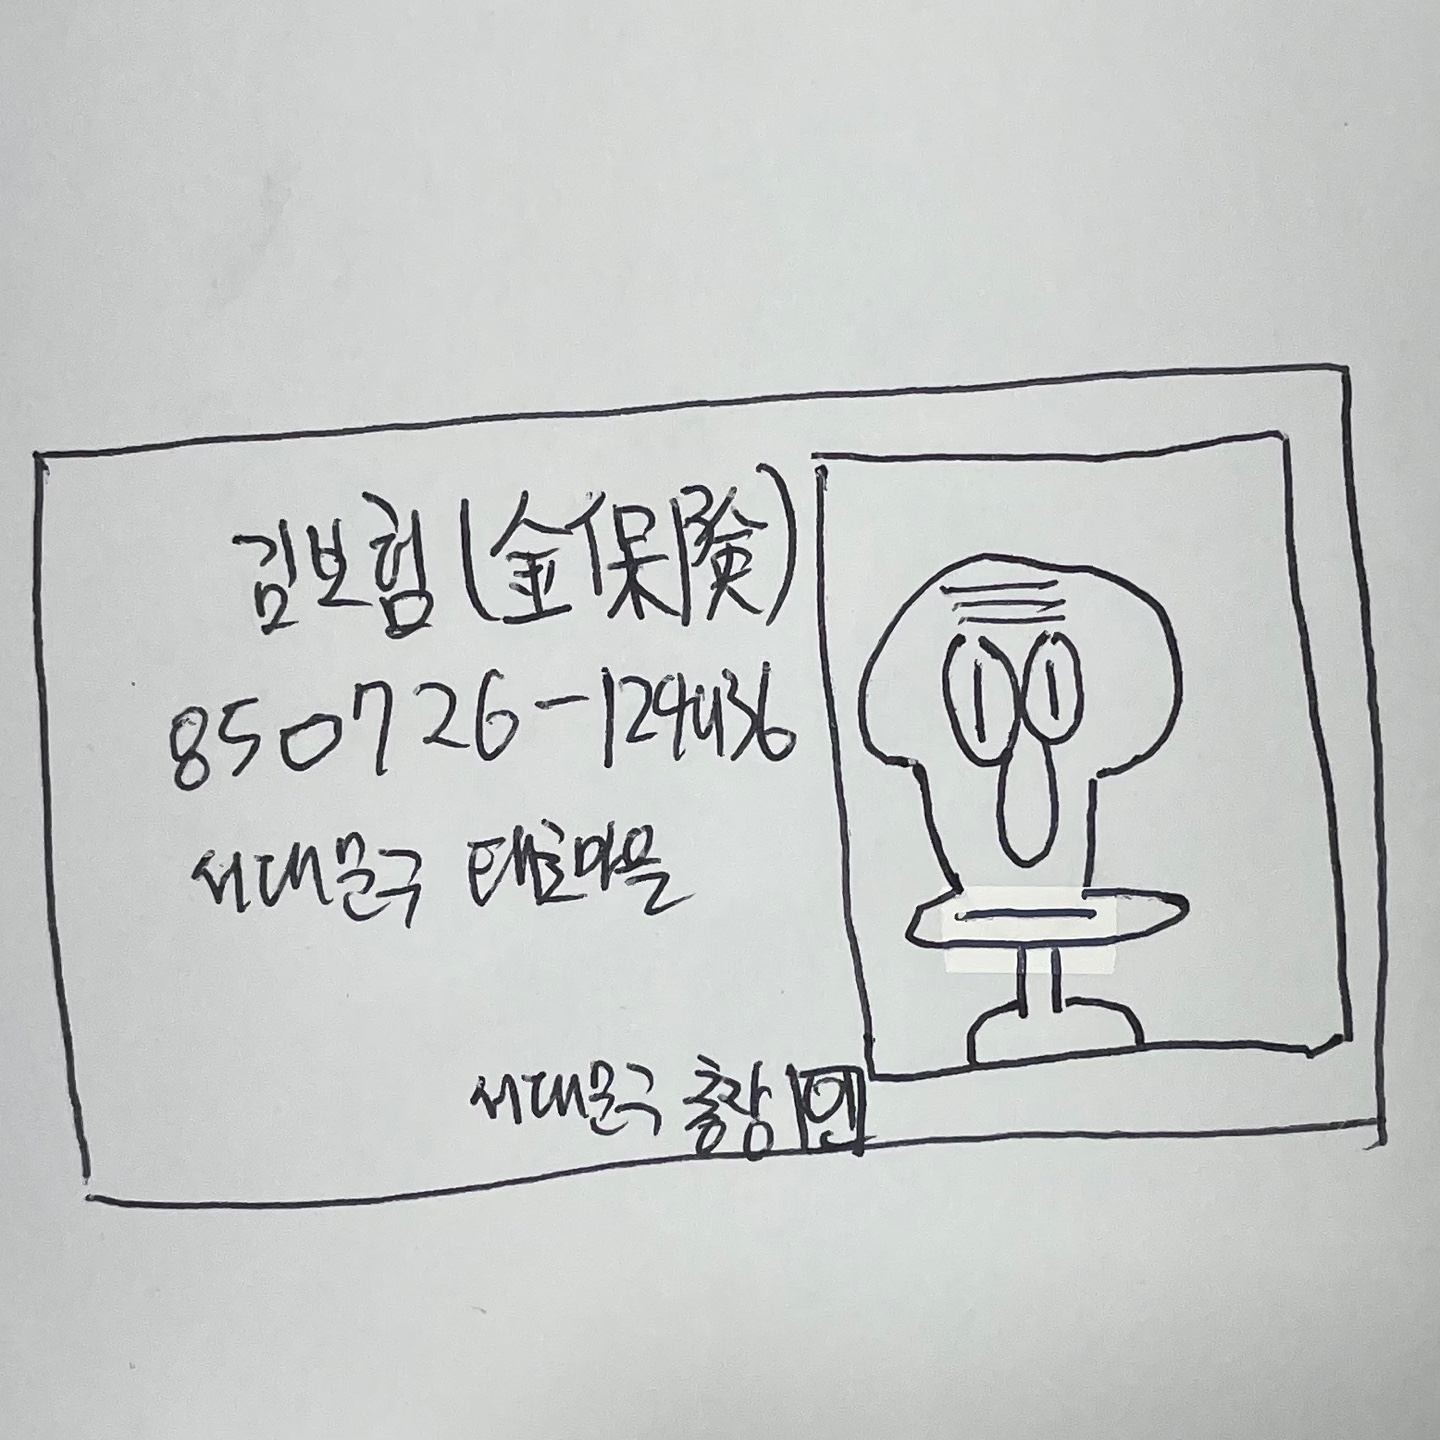 김보험(金保險)
850726-1294136
서대문구 태호마을
서대문구 총장 인